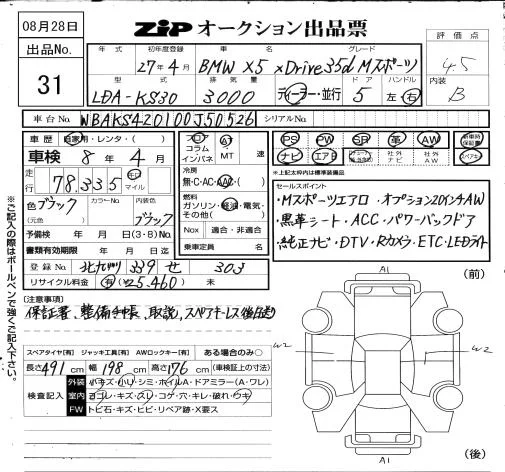 08月28日
ZIP オークション出品票
出品No.
31
年式 初年度登録 車名 グレード
27年4月 BMW X5 xDrive35d Mスポーツ
型式 排気量 ドア ハンドル
LDA-KS30 3000 ディーラー・並行 5 左・右
評価点
4.5
内装
B
車台No. WBAKS420100J50526 シリアルNo.
車歴 自家用・レンタ・( )
車検 8年4月
走行 78,335 km マイル
色 ブラック カラーNo. 内装色 ブラック
(元色)
予備検 年 月 日(3・8)No.
書類有効期限 年 月 日迄
登録No. 北九州 339 せ 303
リサイクル料金 有(¥25,460) 未
フロア AT
コラム
インパネ MT 速
冷房
無・C・AC・AAC・( )
燃料
ガソリン・軽油・電気・
その他( )
Nox 適合・非適合
乗車定員 名
PS PW SR 革 AW 新車時保証書
ナビ エアB 社外ナビ 社外AW スペアキー
※上記太枠内は標準装備品
セールスポイント
・Mスポーツエアロ・オプション20インチAW
・黒革シート・ACC・パワーバックドア
・純正ナビ・DTV・Rカメラ・ETC・LEDライト
(注意事項)
保証書、整備手帳、取説、スペアキーレス後日送り
※ご記入の際はボールペンで強くご記入下さい。
スペアタイヤ[有] ジャッキ工具[有] AWロックキー[有] ある場合のみ○
長さ491cm 幅198cm 高さ176cm (車検証上の寸法)
検査記入
外装 小キズ・小リ・シミ・ホイルA・ドアミラー(A・ワレ)
室内 ヨゴレ・キズ・スレ・コゲ・穴・キレ・破れ・ウキ
FW トビ石・キズ・ヒビ・リペア跡・X要ス
A1
(前)
W2
W2
A1
(後)